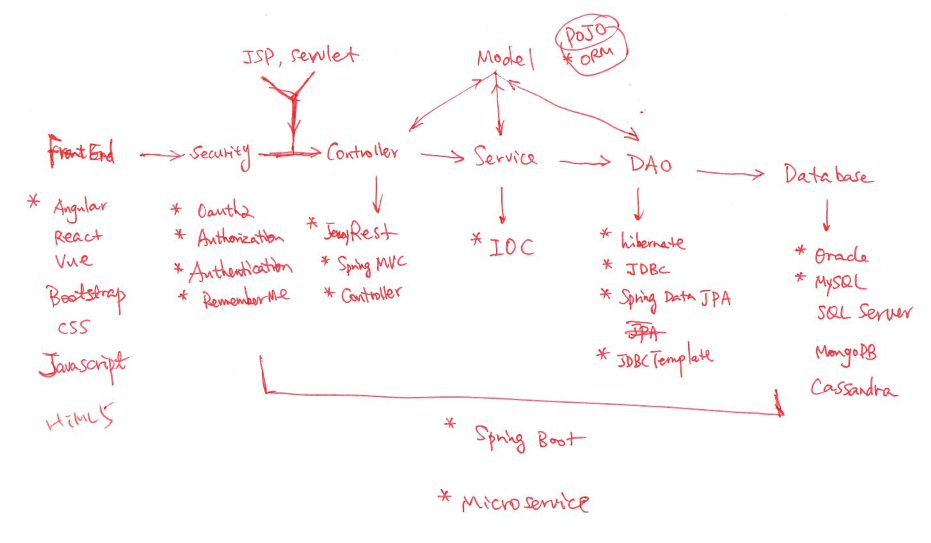 JSP, Servlet
Model
POJO
* ORM
Front End
Security
Controller
Service
DAO
Database
* Angular
React
Vue
Bootstrap
CSS
Javascript
HTML5
* Oauth2
* Authorization
* Authentication
* RememberMe
* JerseyRest
* Spring MVC
* Controller
* IOC
* hibernate
* JDBC
* Spring Data JPA
JPA
* JDBCTemplate
* Oracle
* MySQL
SQL Server
MongoDB
Cassandra
* Spring Boot
* Microservice